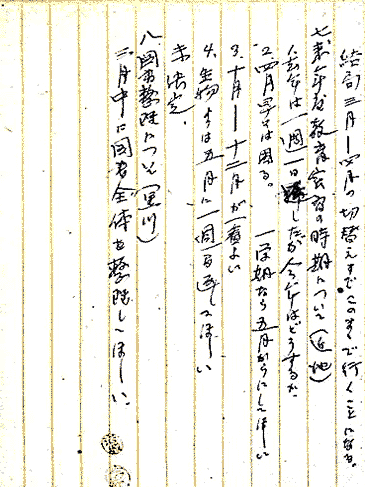 結局三月―四月の切替えまでこのまゝで行くことになる。
七、来年度教育実習の時期について（近地）
1.去年は一週一日でしたが今年はどうするか
2.四月早々は困る。 一学期なら五月からにしてほしい
3.十月―十二月が一番よい
4.生物では五月に一週一日通してほしい
未決定、
八、図書整理について（黒川）
二月中に図書全体を整理してほしい。